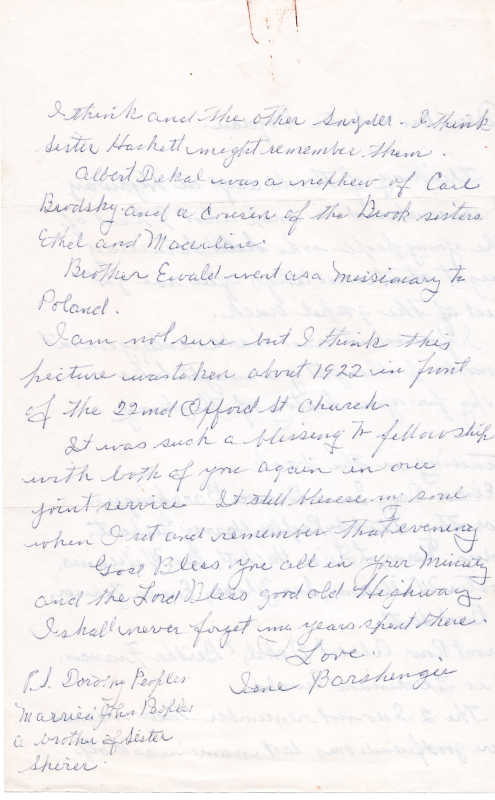 I think and the other Snyder. I think
Sister Hackett meight remember them.
Albert Dekal was a nephew of Carl
Brodsky and a Cousin of the Brook sisters
Ethel and Maderline.
Brother Ewald went as a Missionary to
Poland.
I am not sure but I think this
picture was taken about 1922 in front
of the 22nd Offord St Church.
It was such a blissing to fellowship
with both of you again in our
joint service It still blesses my soul
when I sit and remember that evening
God Bless you all in your Ministry
and the Lord Bless good old Highway
I shall never forget my years spent there.
Love.
Irene
P.S. Dorothy Peoples
Married John Peoples
a brother of Sister
Sherer.